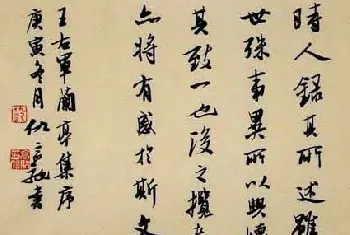 時人錄其所述雖
世殊事異所以興懷
其致一也後之攬
亦將有感於斯文
王右軍蘭亭集序
庚寅冬月
書